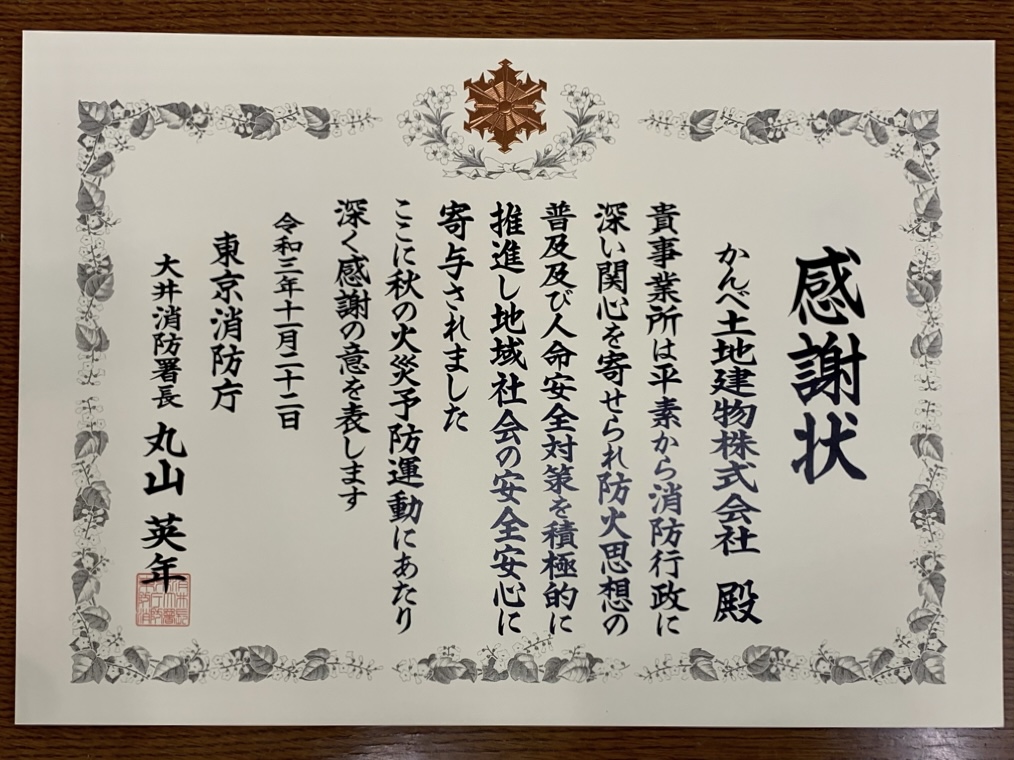 感謝状
かんべ土地建物株式会社 殿
貴事業所は平素から消防行政に
深い関心を寄せられ防火思想の
普及及び人命安全対策を積極的に
推進し地域社会の安全安心に
寄与されました
ここに秋の火災予防運動にあたり
深く感謝の意を表します
令和三年十一月二十二日
東京消防庁
大井消防署長 丸山 英年